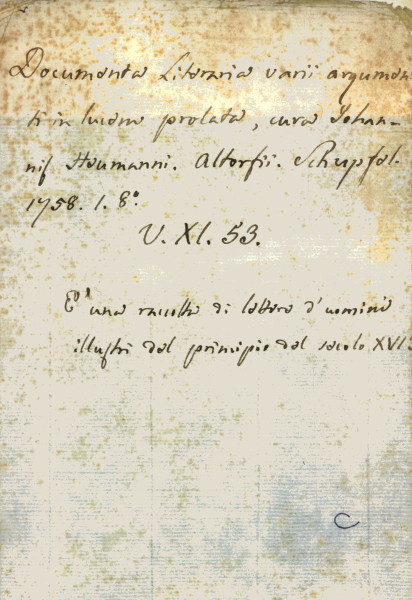 Documenta Literaria varii argumen-
ti in lucem prolata, cura Johan-
nis Heumanni. Altorfii. Schupfel.
1758. 1. 8°
V. XI. 53.
E' una raccolta di lettere d'uomini
illustri del principio del secolo XVI.
C